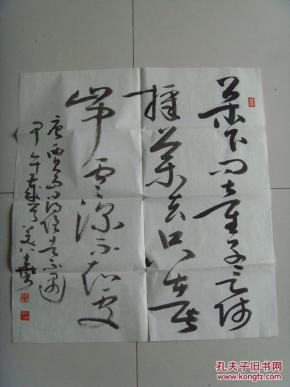 松下问童子言师
採药去只在此
山中雲深不知处
唐贾岛诗寻隐者不遇
甲午
孔夫子旧书网
www.kongfz.com